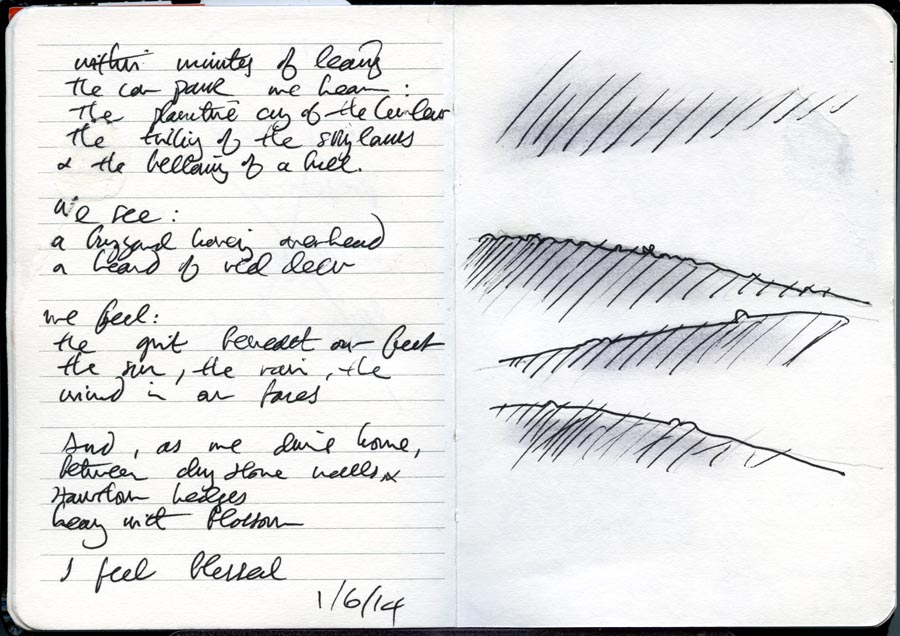 within minutes of leaving
the car park we hear:
The plaintive cry of the Curlew
the trilling of the skylarks
& the bellowing of a bull.
We see:
a buzzard hovering overhead
a heard of red deer
we feel:
the grit beneath our feet
the sun, the rain, the
wind in our faces
And, as we drive home,
between dry stone walls &
Hawthorn hedges
heavy with blossom
I feel blessed
1/6/14